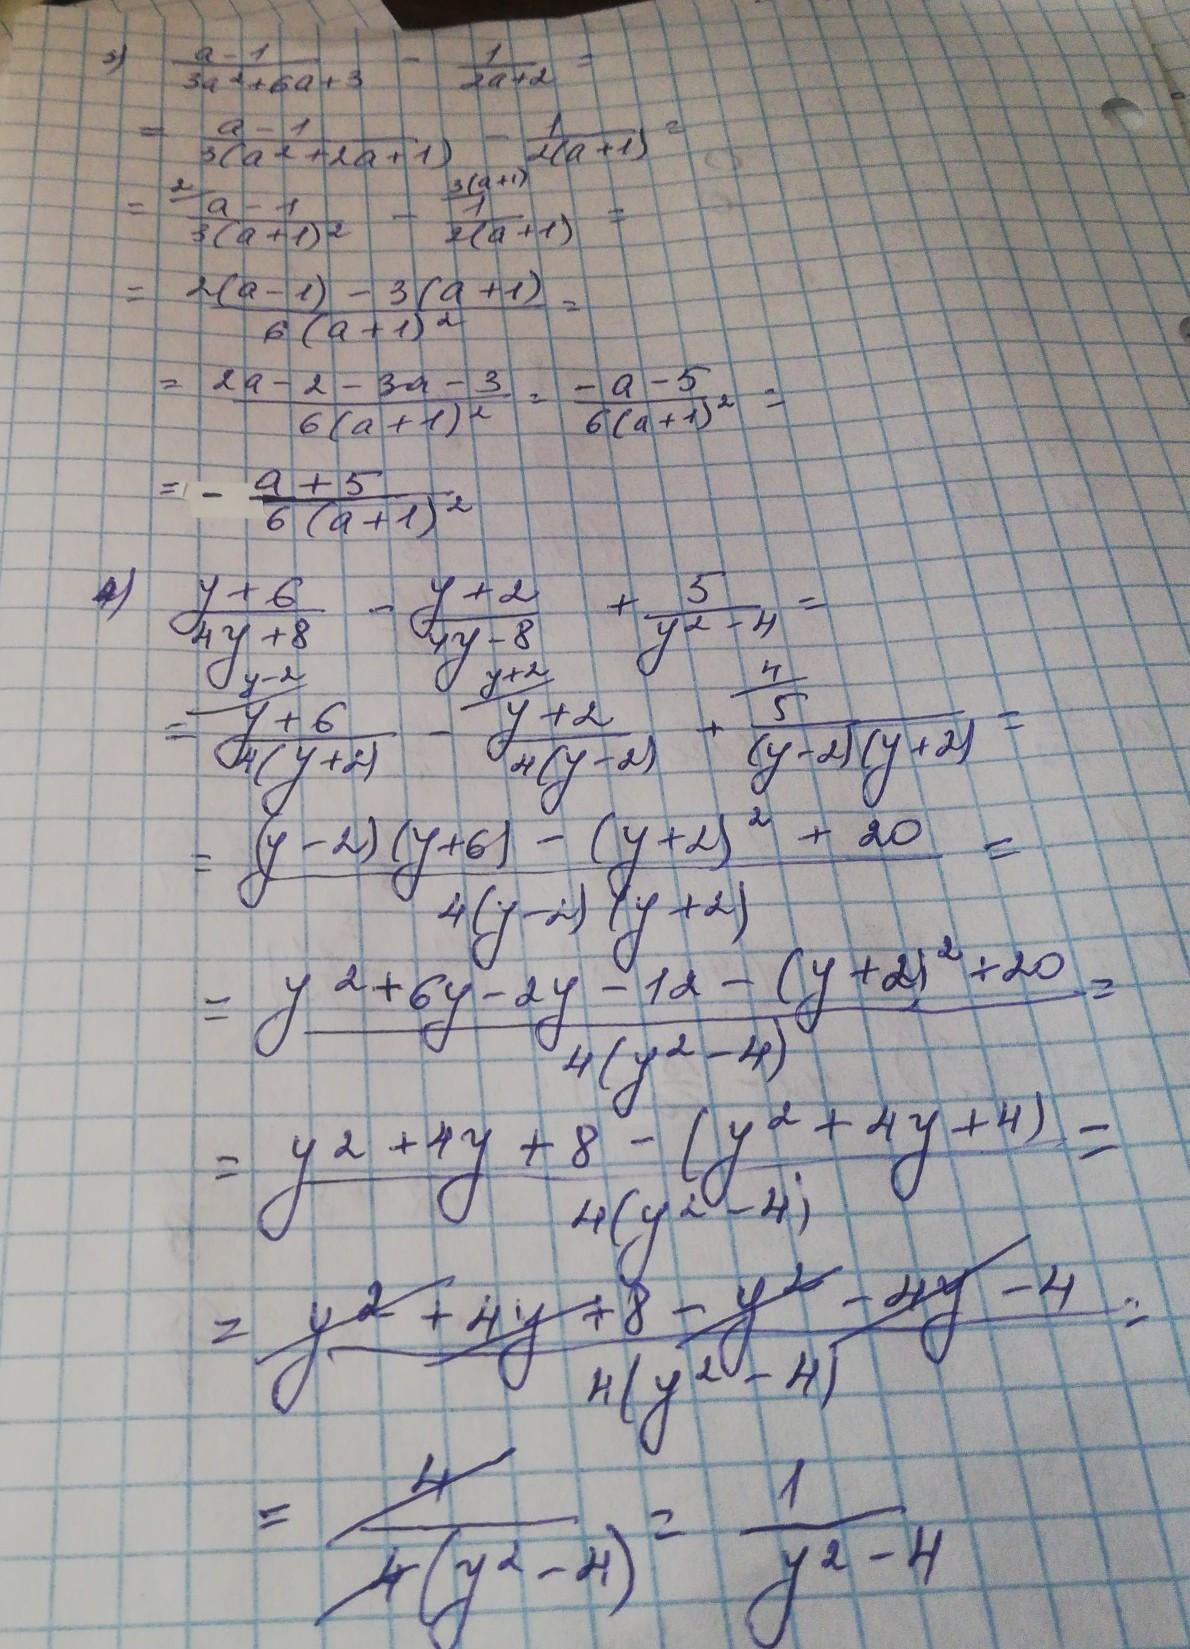 3) (a-1)/(3a²+6a+3) - 1/(2a+2) =
= (a-1)/(3(a²+2a+1)) - 1/(2(a+1)) =
2 3(a+1)
= (a-1)/(3(a+1)²) - 1/(2(a+1)) =
= (2(a-1) - 3(a+1))/(6(a+1)²) =
= (2a-2-3a-3)/(6(a+1)²) = (-a-5)/(6(a+1)²) =
= - (a+5)/(6(a+1)²)
4) (y+6)/(4y+8) - (y+2)/(4y-8) + 5/(y²-4) =
y-2 y+2 4
= (y+6)/(4(y+2)) - (y+2)/(4(y-2)) + 5/((y-2)(y+2)) =
= ((y-2)(y+6) - (y+2)² + 20)/(4(y-2)(y+2)) =
= (y²+6y-2y-12-(y+2)²+20)/(4(y²-4)) =
= (y²+4y+8-(y²+4y+4))/(4(y²-4)) =
= (y²+4y+8-y²-4y-4)/(4(y²-4)) =
= 4/(4(y²-4)) = 1/(y²-4)